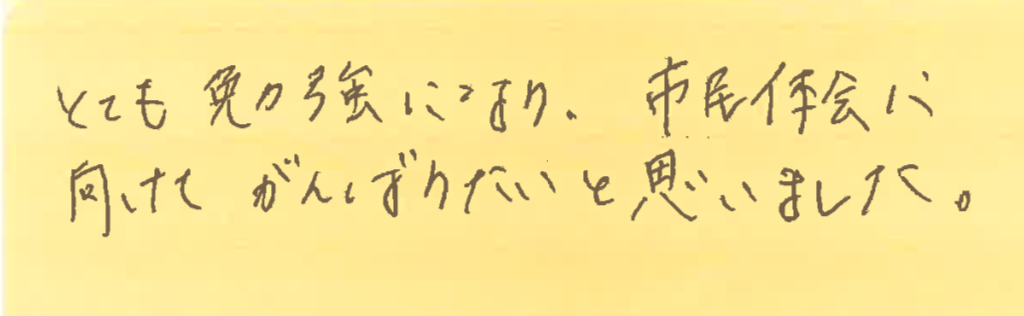 とても勉強になり、市民体会に
向けてがんばりたいと思いました。